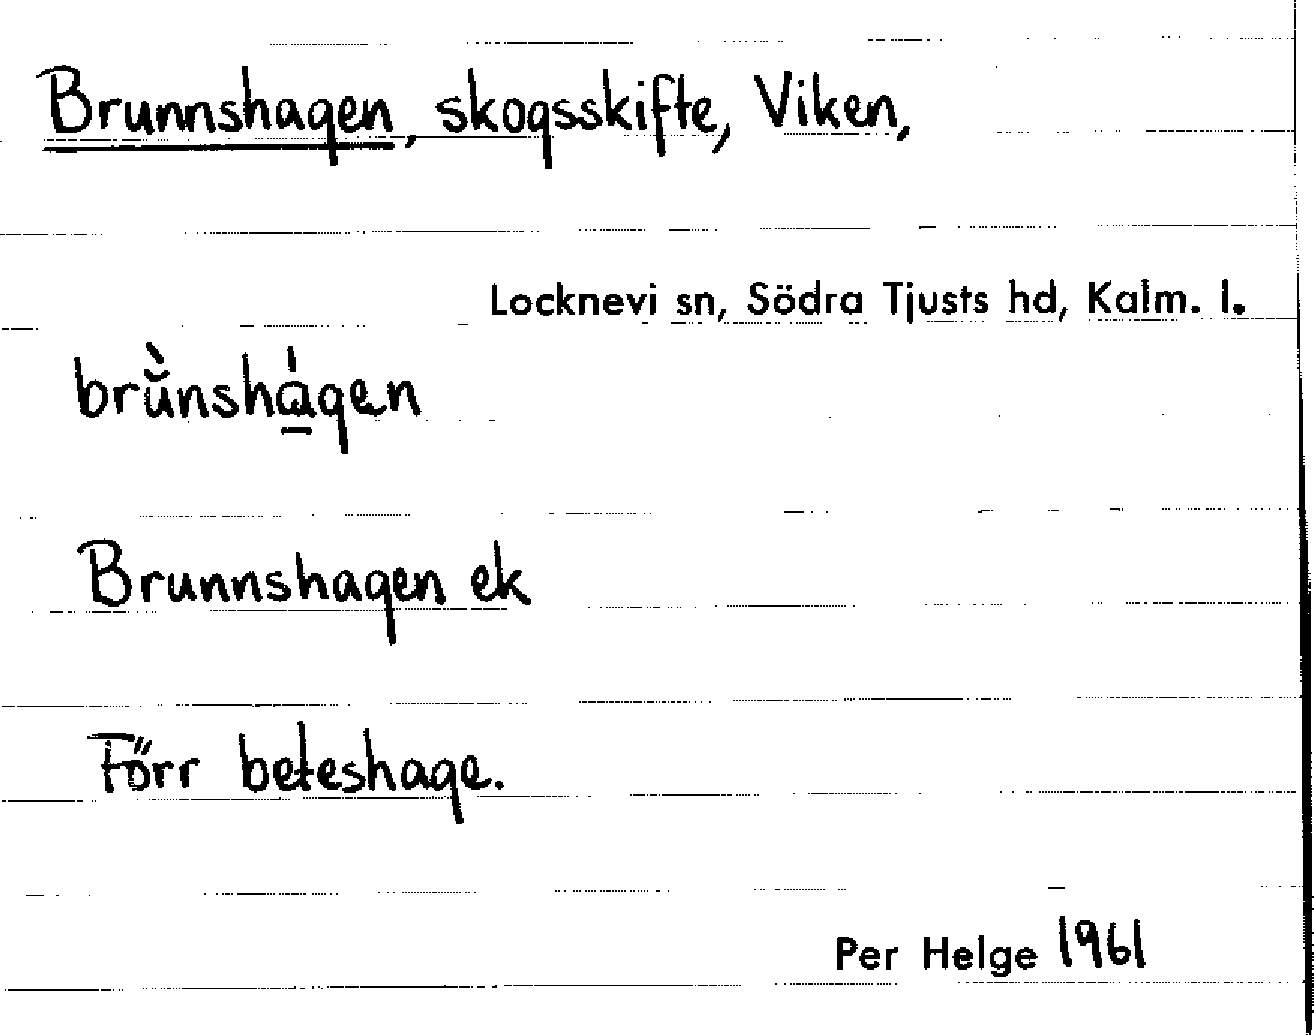 Brunnshagen, skogsskifte, Viken,
Locknevi sn, Södra Tjusts hd, Kalm. l.
brŭ̀nshá̱gen
Brunnshagen ek
Förr beteshage.
Per Helge 1961